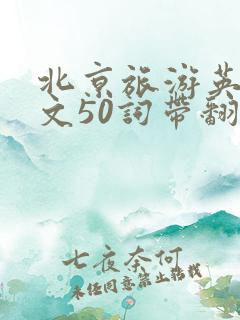 北京旅游英
文50詞帶翻
七夜奈何
未经同意禁止转载